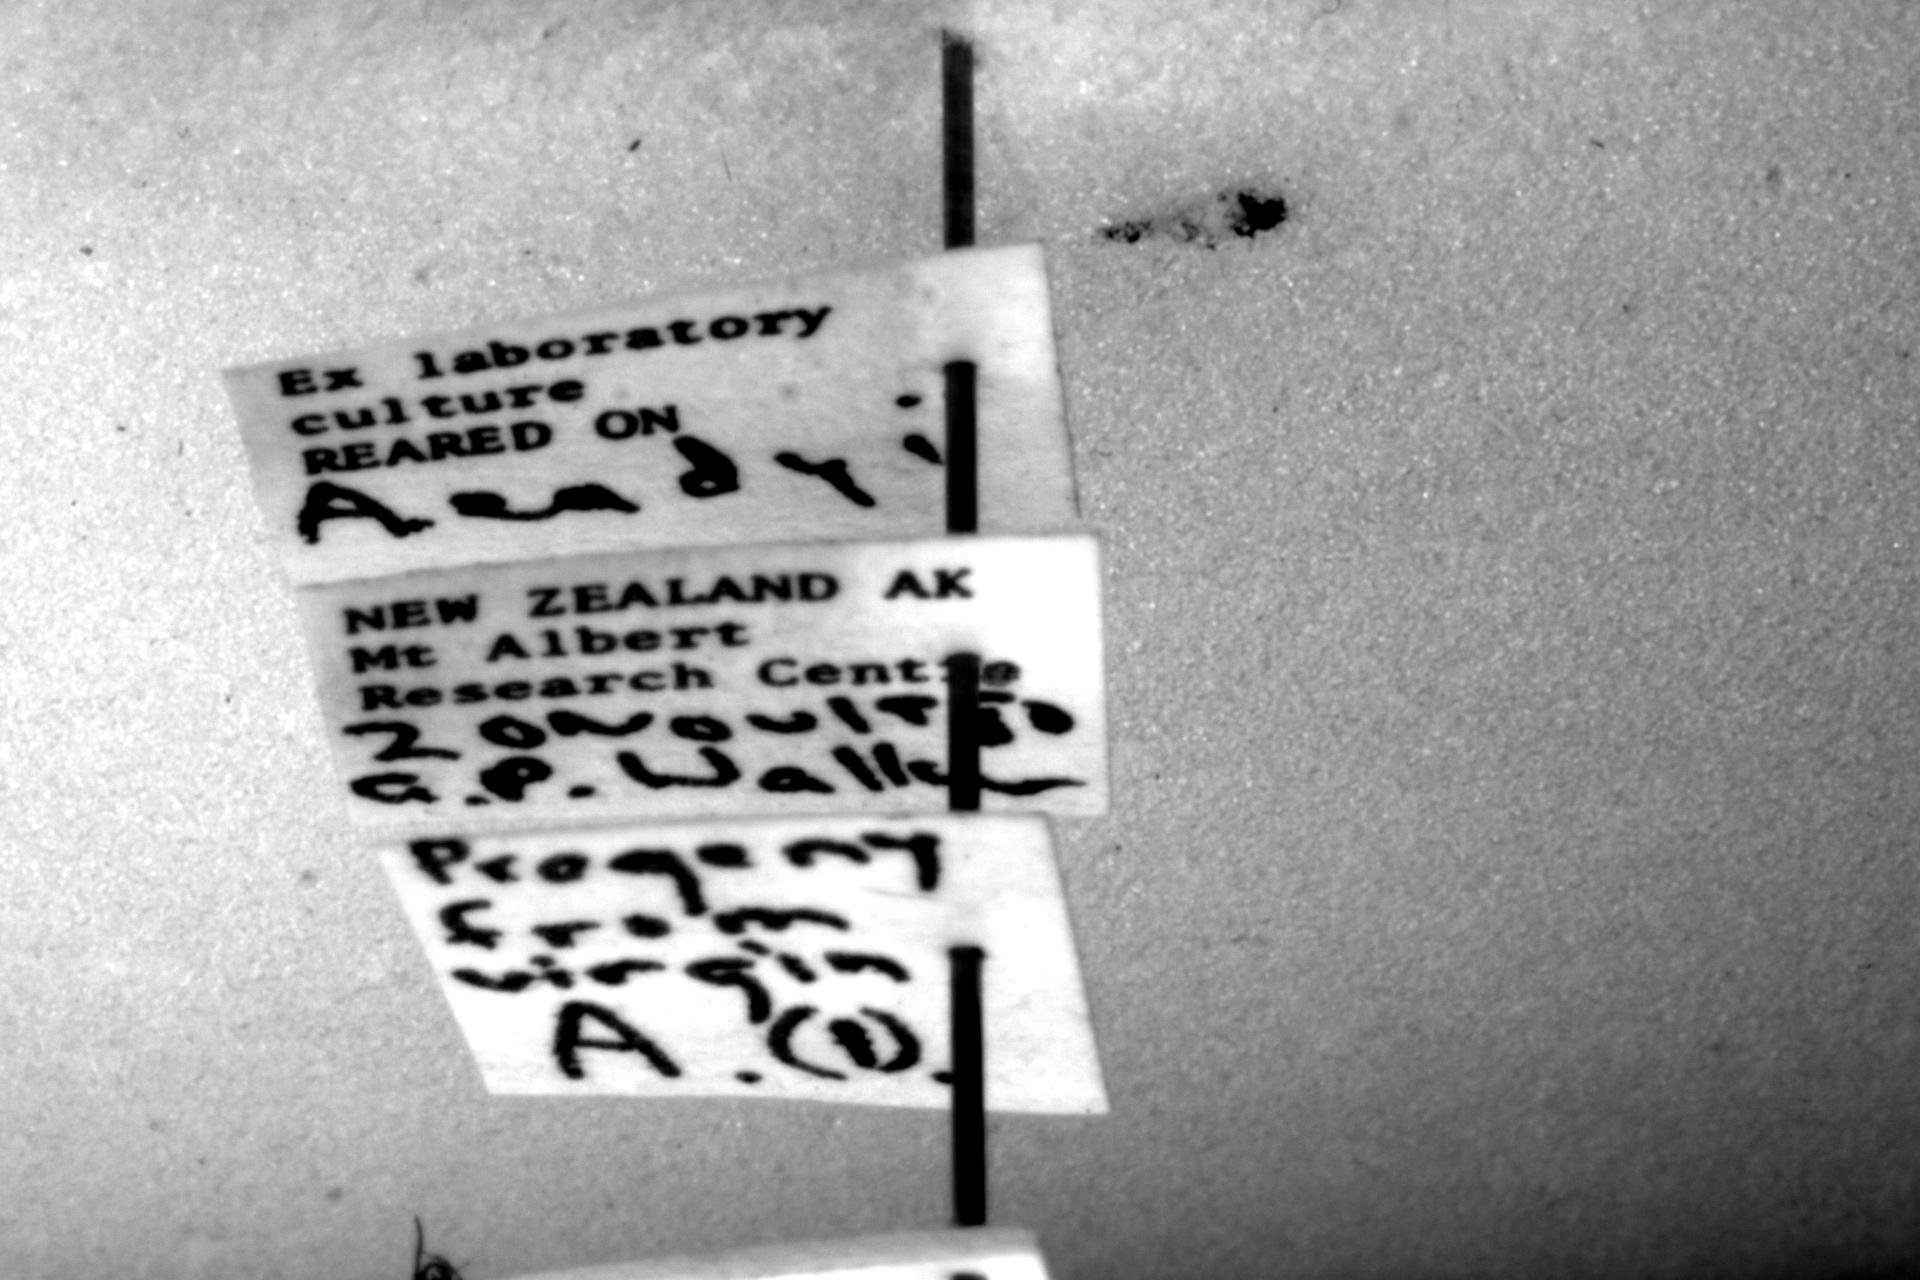 Ex laboratory
culture
REARED ON
NEW ZEALAND AK
Mt Albert
Research Centre
G.P. Walker
Progeny
from
virgin
A. (1).